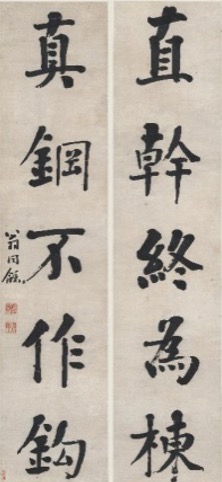 直幹終為棟
真鋼不作鈎
翁同龢